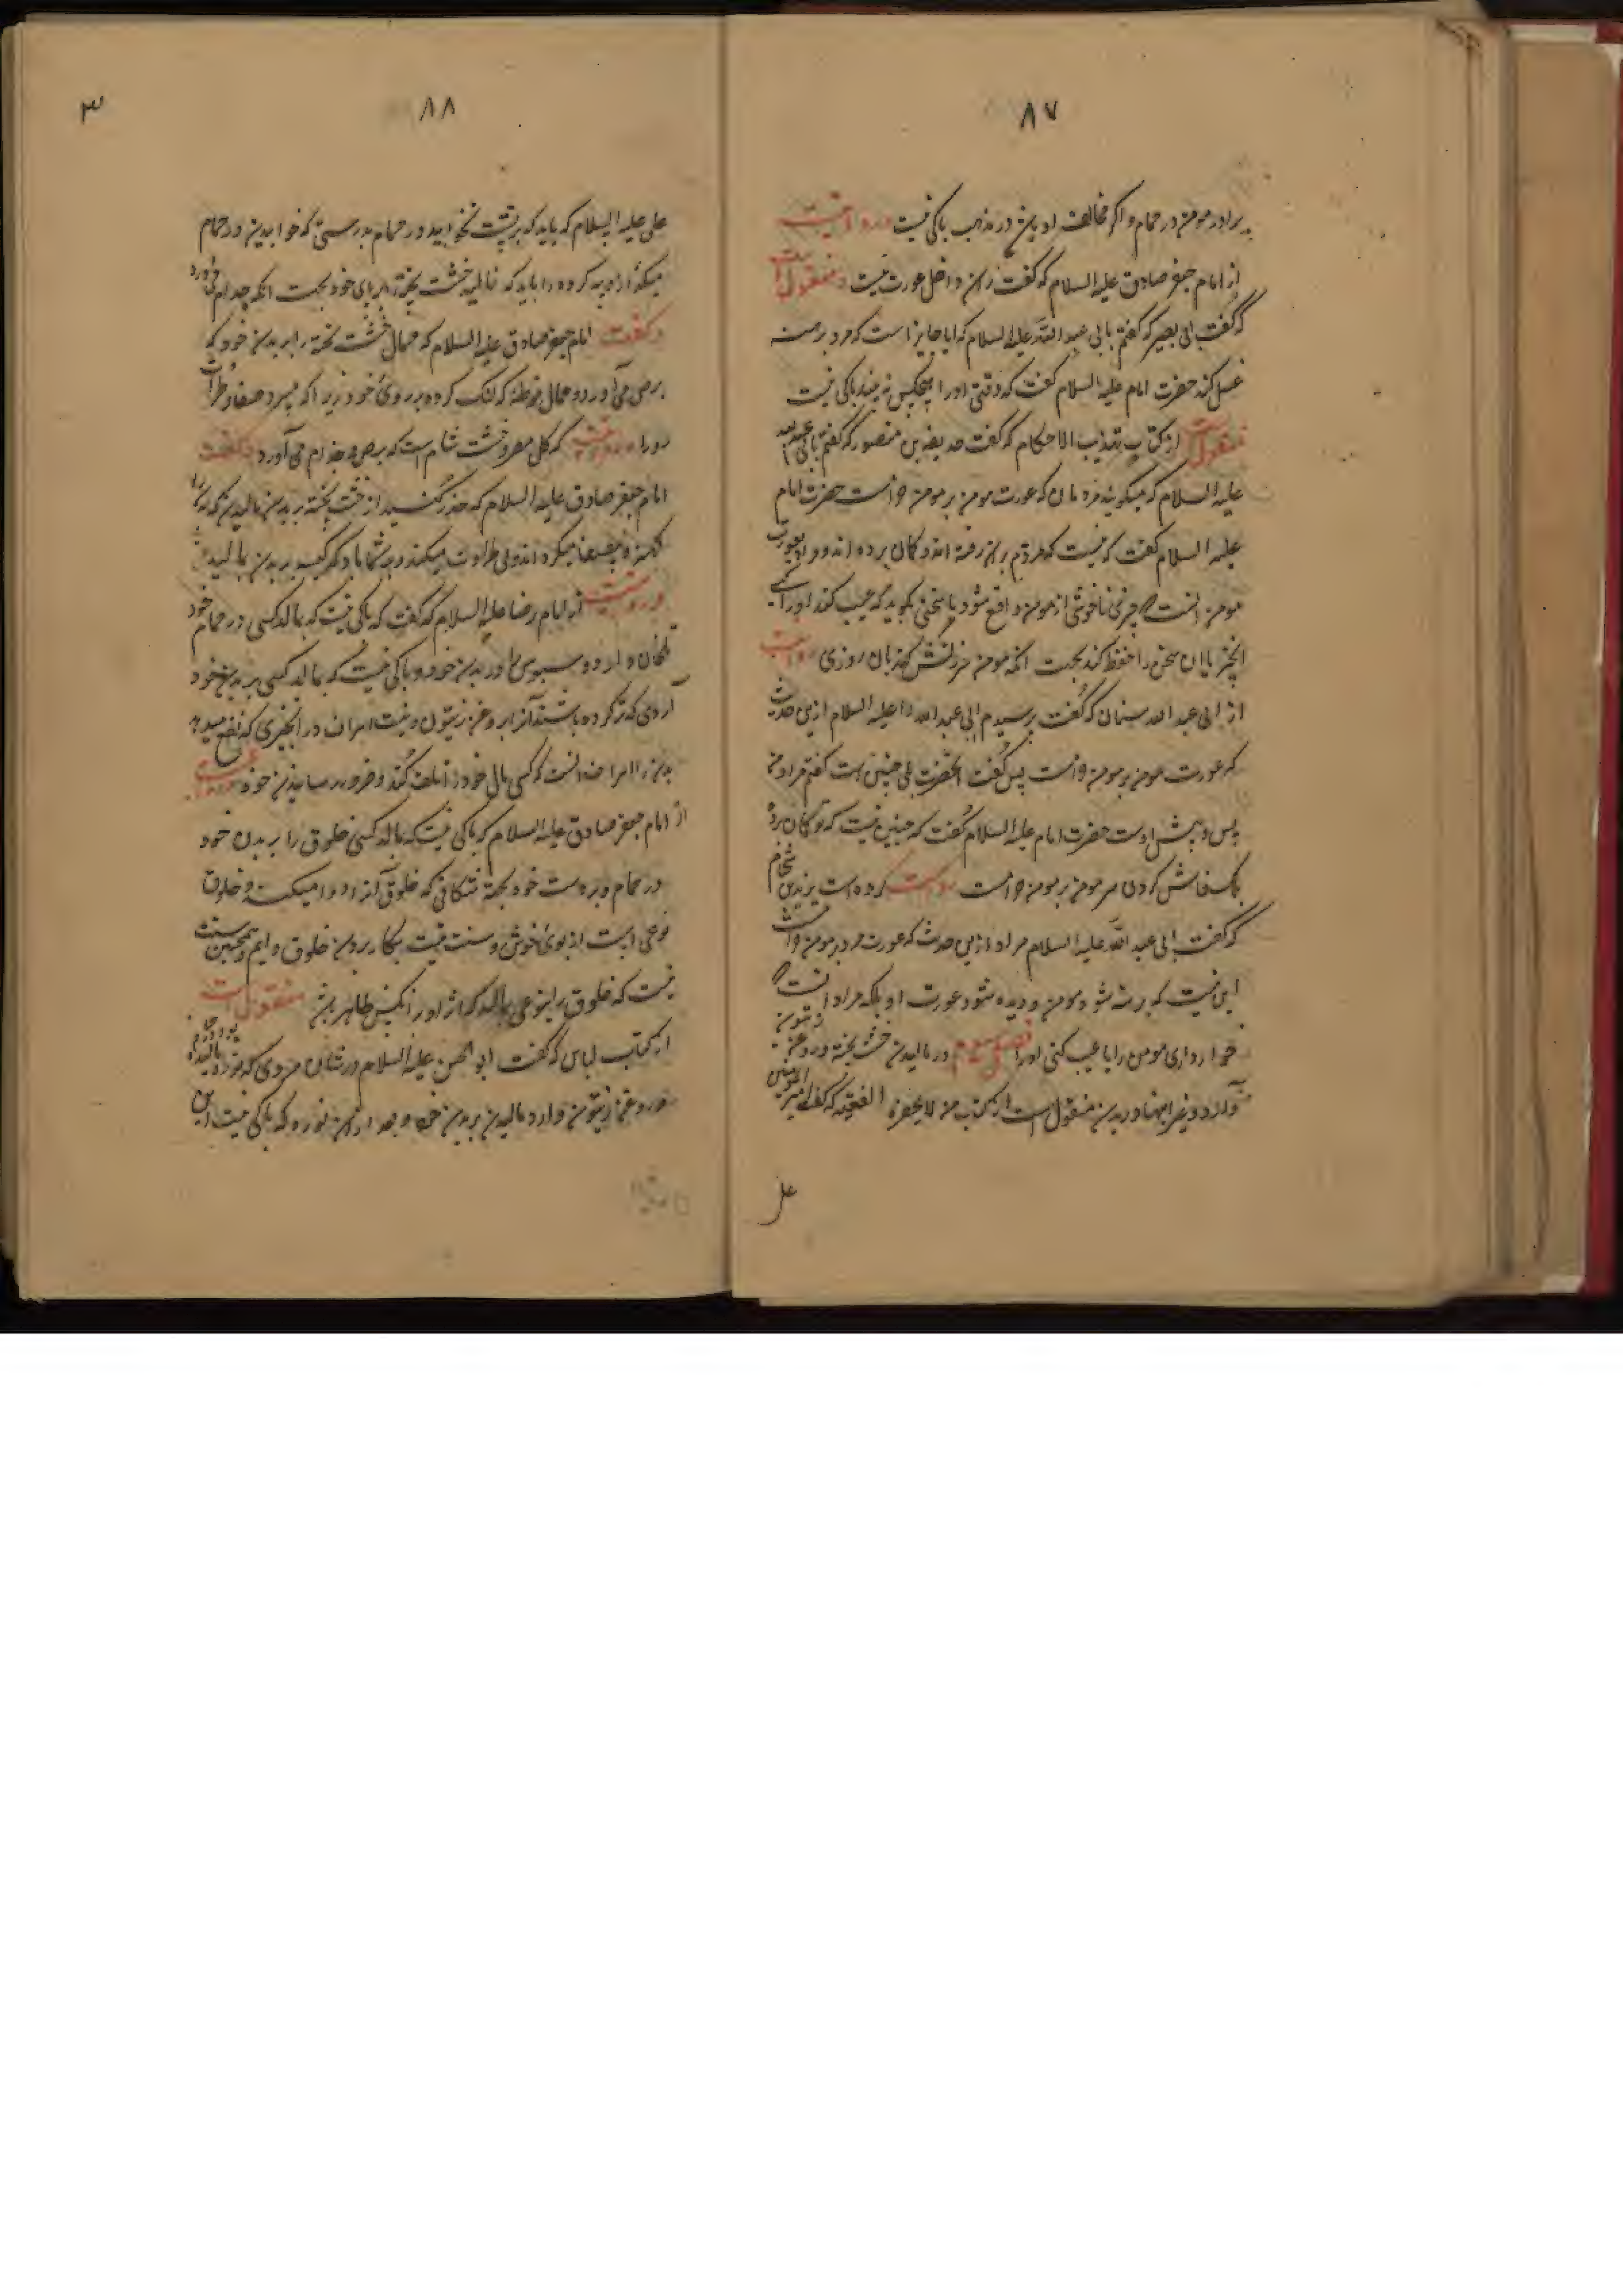 ٨٧
برادر مومن در حمام و اگر مخالف او باشد در مذهب باکی نیست و روایت
از امام جعفر صادق علیه السلام که گفت ران داخل عورت نیست منقول است
که گفت ابی بصیر که گفتم بابی عبد الله علیه السلام که ایا جایز است که مرد برهنه
غسل کند حضرت امام علیه السلام گفت که وقتی اورا هیچکس نه بیند باکی نیست
منقول است از کتاب تهذیب الاحکام که گفت حذیفه بن منصور که گفتم بابی عبد الله
علیه السلام که میگویند مردمان که عورت مومن بر مومن حرامست حضرت امام
علیه السلام گفت که نیست که مردم بران رفته اند و گمان برده اند و مراد بعورت
مومن انست که چیزی ناخوشی از مومن واقع شود یا سخنی بگوید که عیب کند اورا
انچیز یا ان سخن را حفظ کند بجهت انکه مومن سرزنش کند بان روزی روایت
از ابی عبد الله سنان که گفت پرسیدم ابی عبد الله را علیه السلام ازین حدیث
که عورت مومن بر مومن حرامست پس گفت انحضرت بلی چنین است گفتم مراد
پس و پیش اوست حضرت امام علیه السلام گفت که چنین نیست که تو گمان برده
بلک فاش کردن سر مومن بر مومن حرامست روایت کرده است زید شحام
که گفت ابی عبد الله علیه السلام مراد ازین حدیث که عورت مرد مومن حرامست
این نیست که برهنه شود مومن و دیده شود عورت او بلکه مراد انست که
خوار داری مومن را یا عیب کنی اورا فصل سوم در مالیدن خشت پخته و روغن زیتون
و ارد و غیر اینها در بدن منقول است از کتاب من لا یحضره الفقیه که گفت امیر المومنین
علی
٣
٨٨
علی علیه السلام که باید که بر پشت نخوابید در حمام بدرستی که خوابیدن در حمام
میگذارد پیه گروه را باید که نمالید خشت پخته را بر پای خود بجهت انکه جذام
و گفت امام جعفر صادق علیه السلام که ممال خشت پخته را بر بدن خود که
برص می آورد و ممال خرطه که لنگ کرده بر روی خود زیرا که میبرد صفا و طراوت
رورا و روایت که گل مصر و خشت شام است که برص و جذام می آورد و گفت
امام جعفر صادق علیه السلام که حذر کنید از خشت پخته بر بدن مالیدن که
کهنه میکرداند ولی طراوت میکند و بر شما باد که کیسه بر بدن بمالید
و روایت از امام رضا علیه السلام که گفت که باکی نیست که بمالد کسی در حمام خود
تلخان و ارد و سبوس را در بدن خود و باکی نیست که بمالد کسی بر بدن خود
آردی که تر کرده باشند آنرا بروغن زیتون و نیست اسراف در انچیزی که نفع میدهد
بدن را اسراف انست که کسی مال خودرا تلف کند و ضرر رساند بدن خود روایت
از امام جعفر صادق علیه السلام که باکی نیست که بمالد کسی خلوق را بر بدن خود
در حمام و بر دست خود بجهة شکافی که خلوق آنرا دوا میکند و خلوق
نوعی است از بوی خوش و سنت نیست بکار بردن خلوق دایم و همچنین سنت
نیست که خلوق را بنوعی بمالد که اثر او در انکس ظاهر باشد منقول است
از کتاب لباس که گفت ابو الحسن علیه السلام در شان مردی که نوره مالیده
بود و روغن زیتون و ارد مالیدن بر بدن خود بعد از ان نوره که باکی نیست